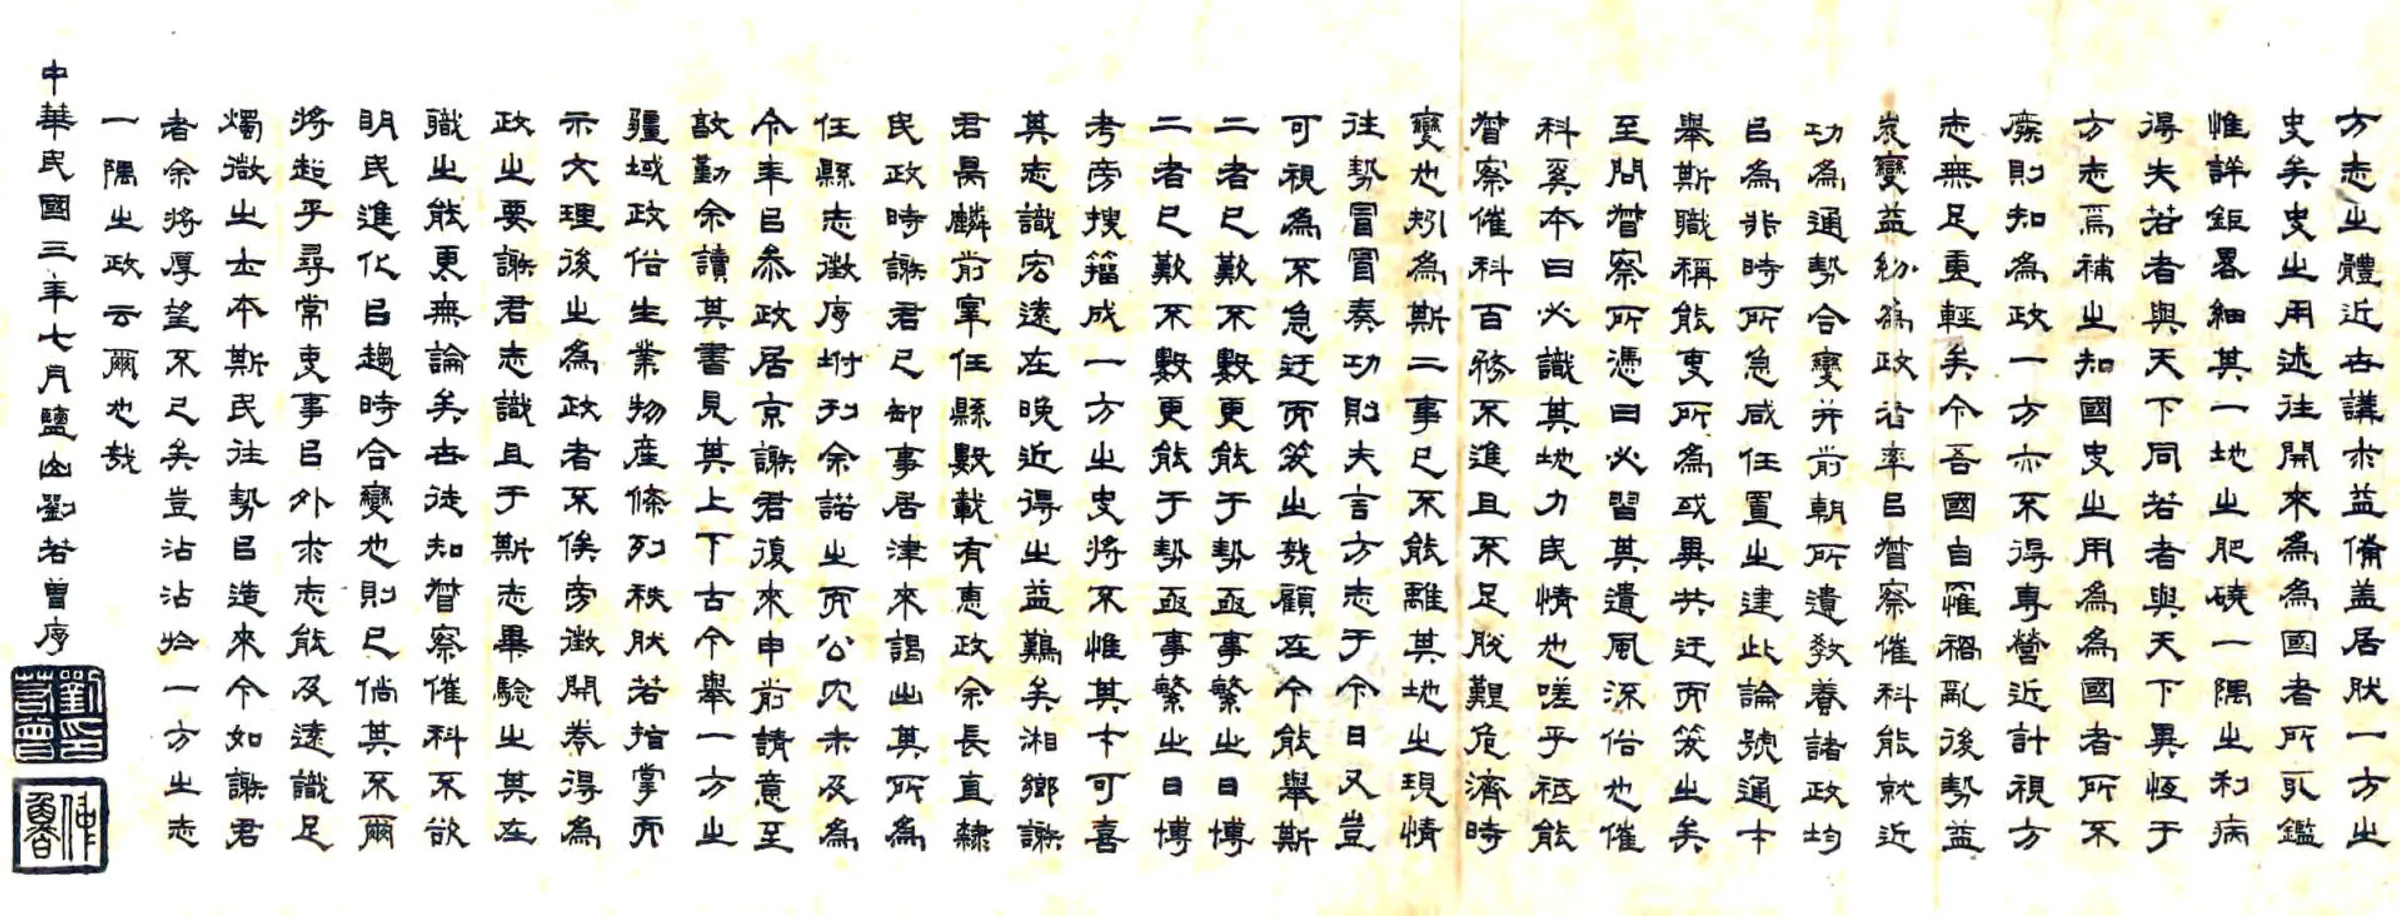 方志之體近古講求益備蓋居然一方之
史矣史之用述往開來為為國者所取鑑
惟詳鉅畧細其一地之肥磽一隅之利病
得失若者與天下同若者與天下異恆于
方志焉補之知國史之用為為國者所不
廢則知為政一方亦不得專營近計視方
志無足重輕矣今吾國自罹禍亂後勢益
岌變益紛為政者率㠯督察催科能就近
功為通勢合變并前朝所遺教養諸政均
㠯為非時所急咸任置之建此論號通才
舉斯職稱能吏所為或異共迂而笑之矣
至問督察所憑曰必習其遺風深俗也催
科奚本曰必識其地力民情也嗟乎秪能
督察催科百務不進且不足脫艱危濟時
變也矧為斯二事已不能離其地之現情
往勢冒冒奏功則夫言方志于今日又豈
可視為不急迂而笑之哉顧在今能舉斯
二者已歎不數更能于勢亟事繁之日博
二者已歎不數更能于勢亟事繁之日博
考旁搜籀成一方之史將不惟其才可喜
其志識宏遠在晚近得之益難矣湘鄉謝
君晃麟前宰任縣數載有惠政余長直隸
民政時謝君已卸事居津來謁出其所為
任縣志徵序坿刊余諾之而公冗未及為
今年㠯叅政居京謝君復來申前請意至
敦勤余讀其書見其上下古今舉一方之
疆域政俗生業物產條列秩然若指掌而
示文理後之為政者不俟旁徵開卷得為
政之要謝君志識且于斯志畢驗之其在
職之能更無論矣古徒知督察催科不欲
明民進化㠯趨時合變也則已倘其不爾
將超乎尋常吏事㠯外求志能及遠識足
燭微之士本斯民往勢㠯造來今如謝君
者余將厚望不已矣豈沾沾於一方之志
一隅之政云爾也哉
中華民國三年七月鹽山劉若曾序
劉若曾印
仲魯